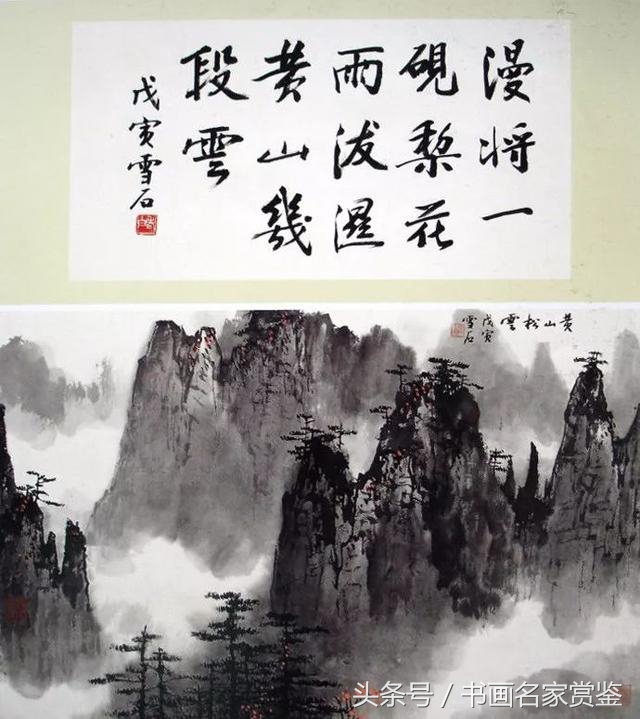 漫将一
砚梨花
雨泼湿
黄山幾
段雲
戊寅雪石
黄山松雲
戊寅
雪石
头条号 / 书画名家赏鉴